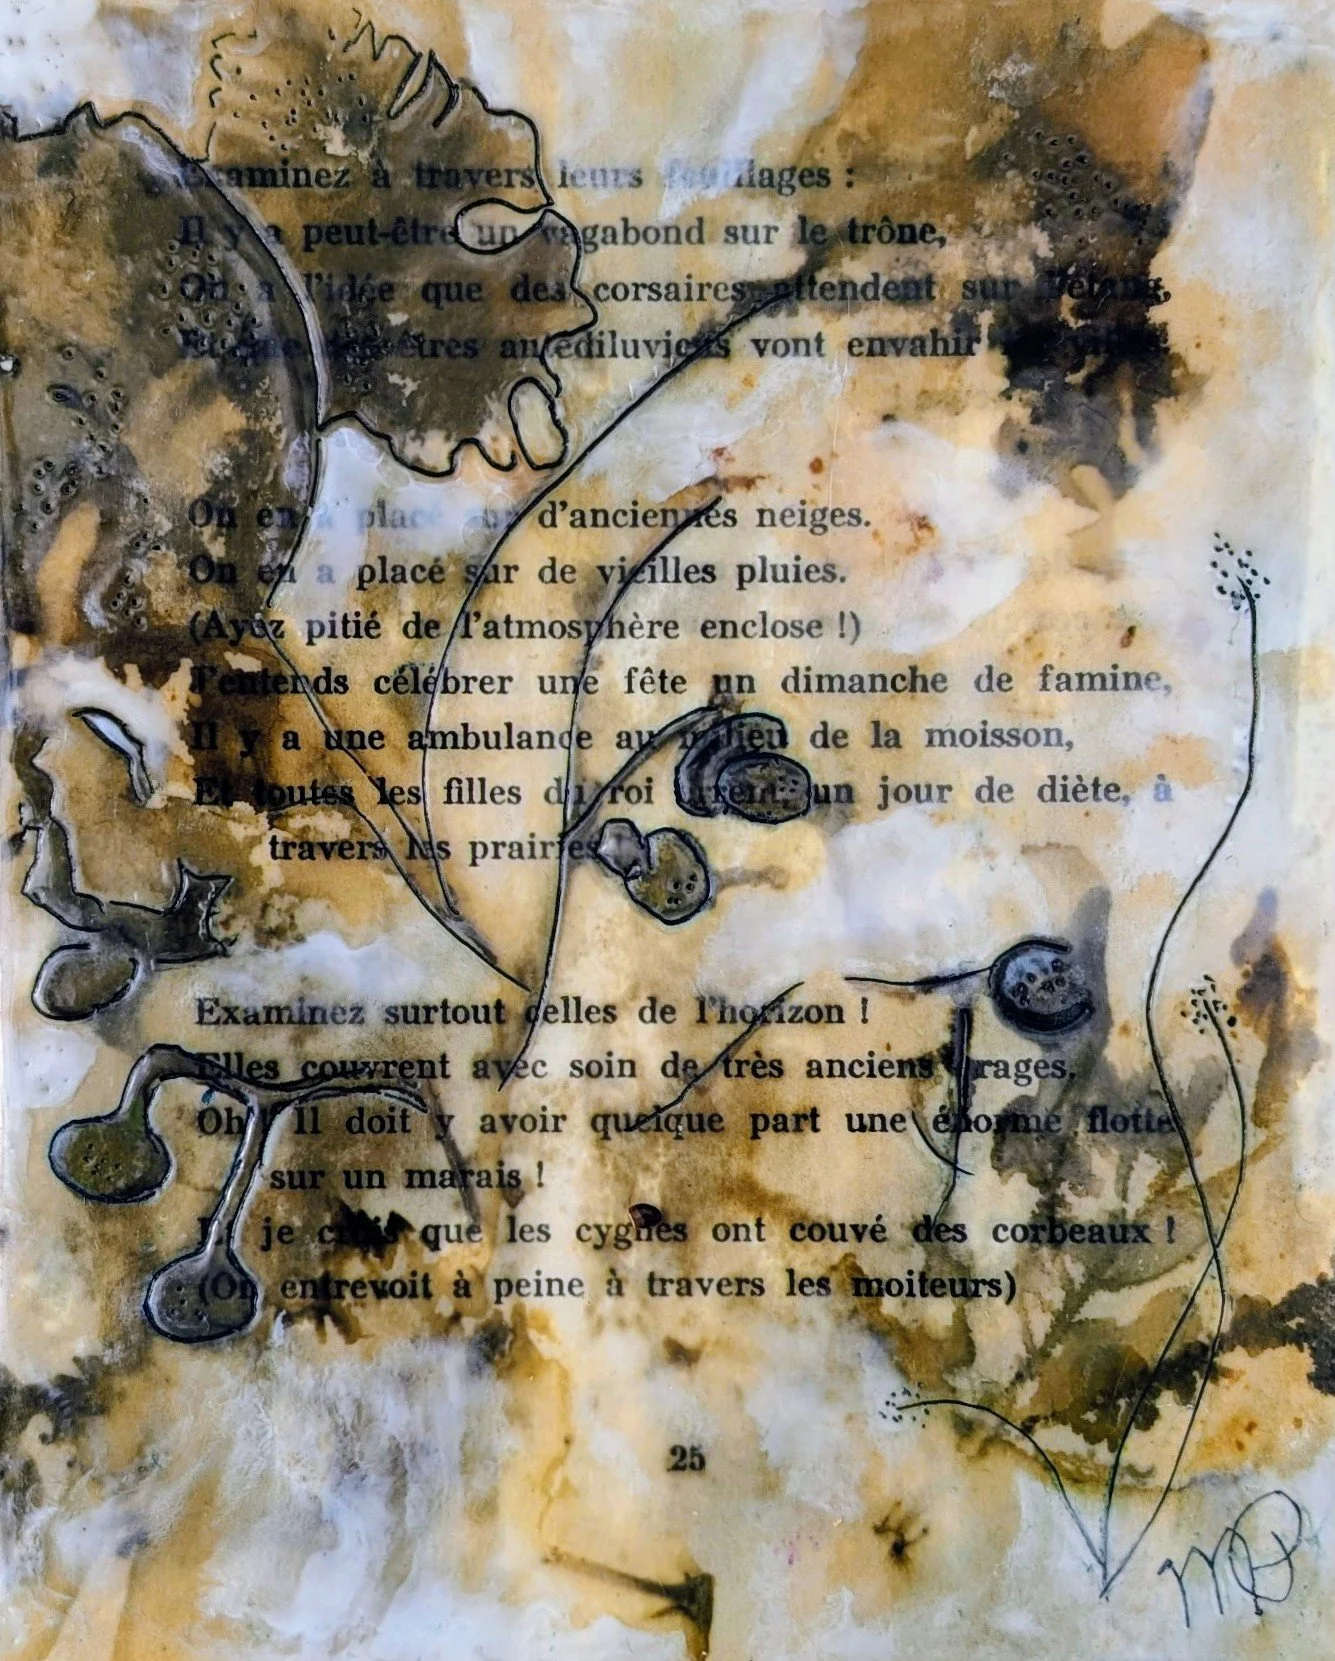 Examinez à travers leurs feuillages :
Il y a peut-être un vagabond sur le trône,
On a l'idée que des corsaires attendent sur l'étang,
Et que des êtres antédiluviens vont envahir
On en a placé sur d'anciennes neiges.
On en a placé sur de vieilles pluies.
(Ayez pitié de l'atmosphère enclose !)
J'entends célébrer une fête un dimanche de famine,
Il y a une ambulance au milieu de la moisson,
Et toutes les filles du roi errent, un jour de diète, à
travers les prairies
Examinez surtout celles de l'horizon !
Elles couvrent avec soin de très anciens orages.
Oh ! Il doit y avoir quelque part une énorme flotte
sur un marais !
Et je crois que les cygnes ont couvé des corbeaux !
(On entrevoit à peine à travers les moiteurs)
25